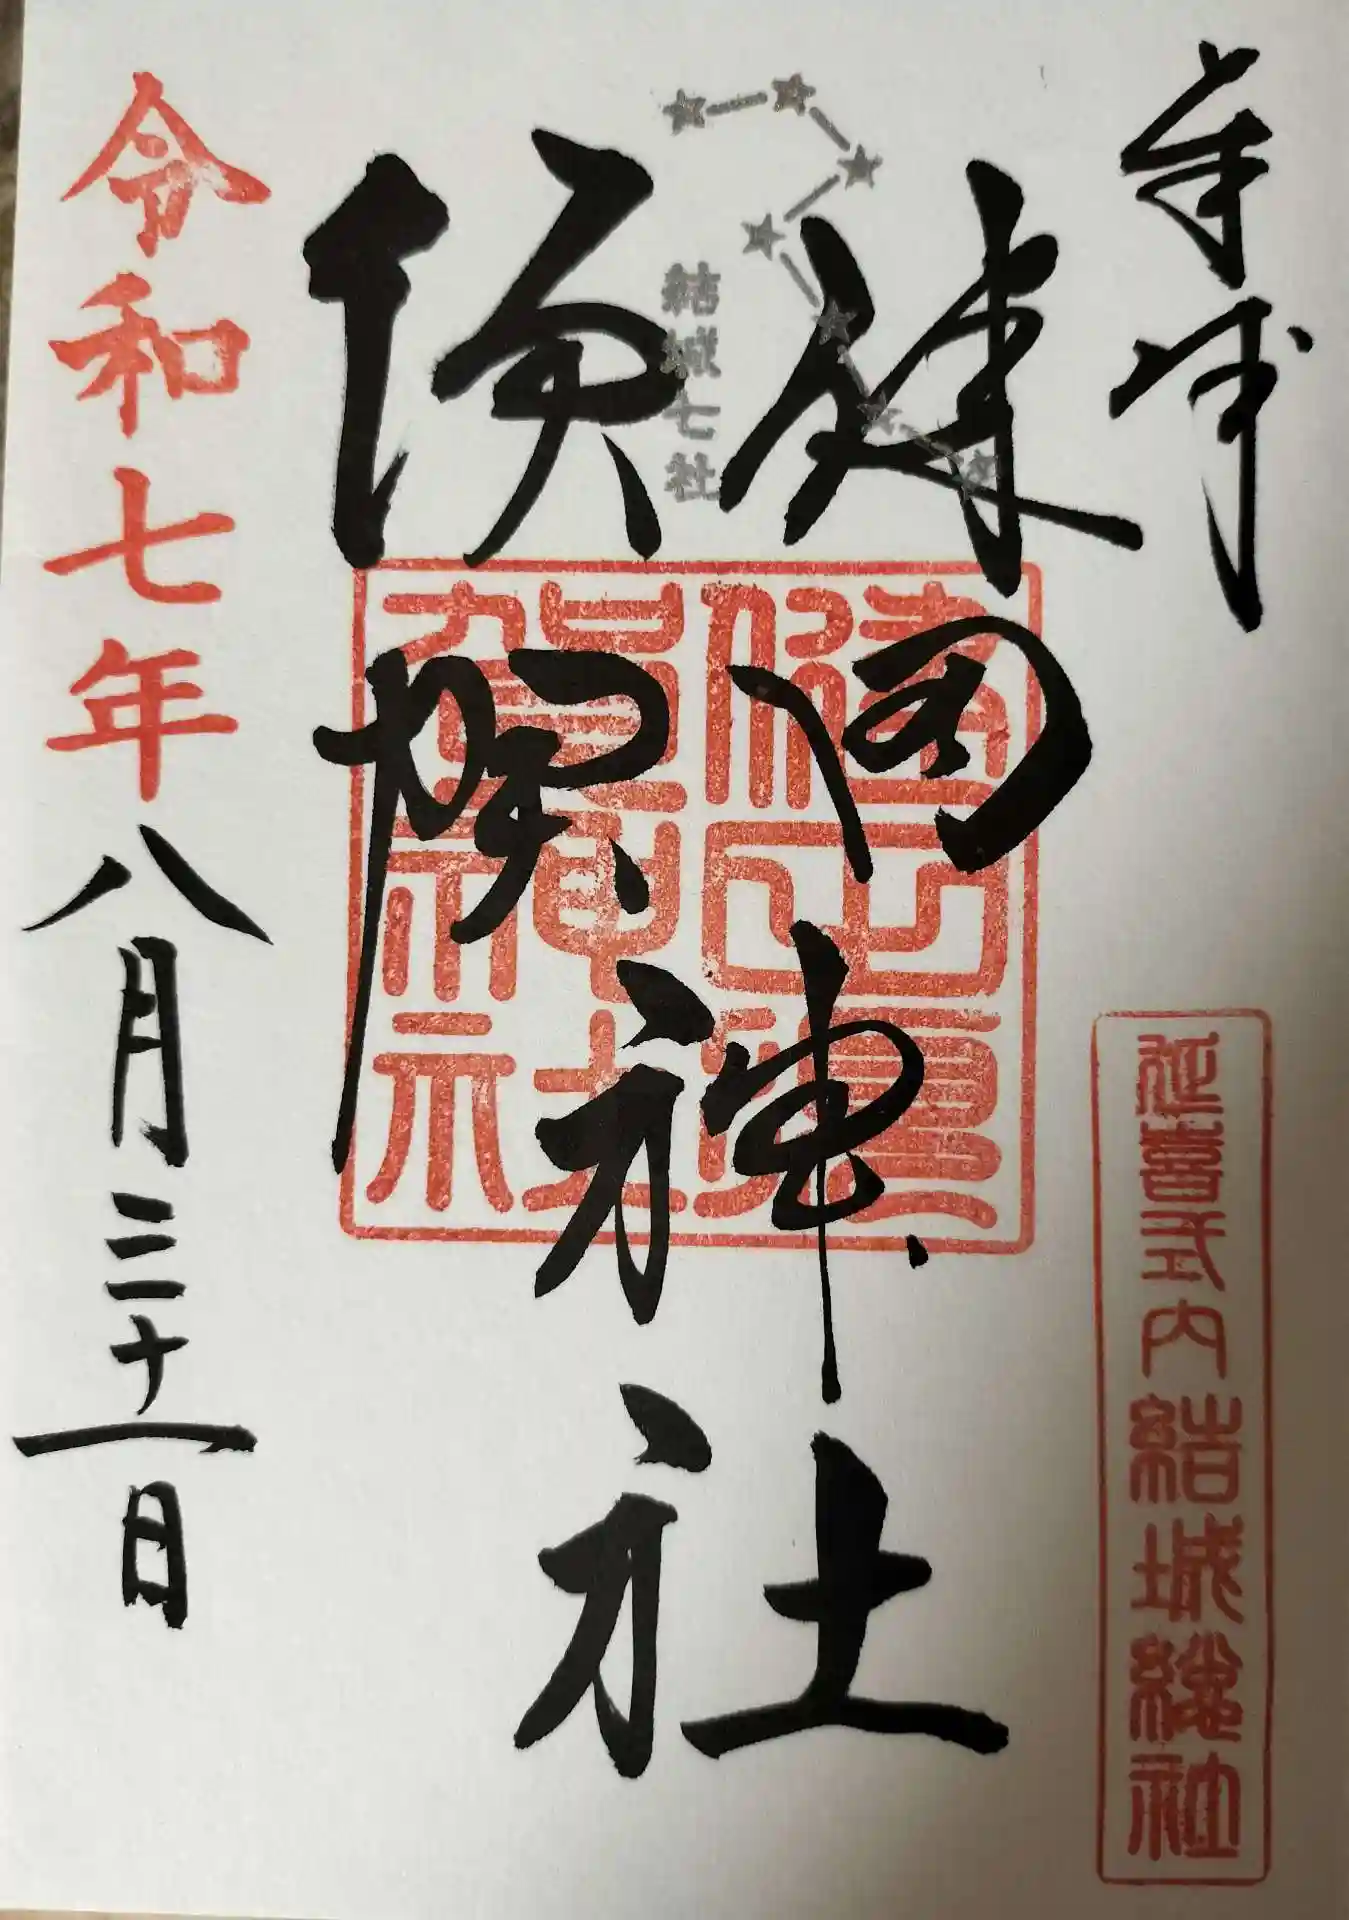 奉拝
健田
須賀
神社
結城七社
健田須
賀神社
延喜式内結城總社
令和七年八月三十一日